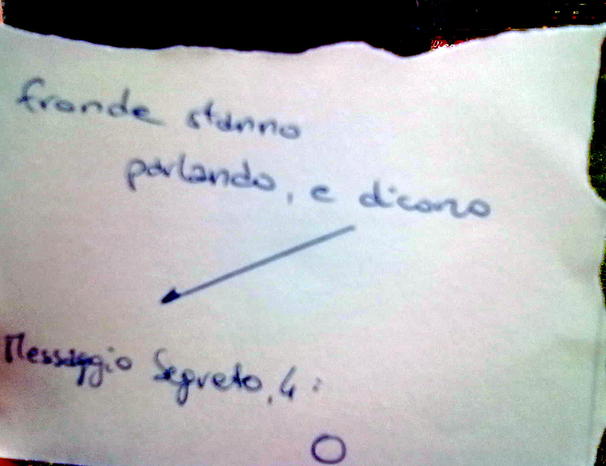 fronde stanno
parlando, e dicono
Messaggio Segreto, 4:
O